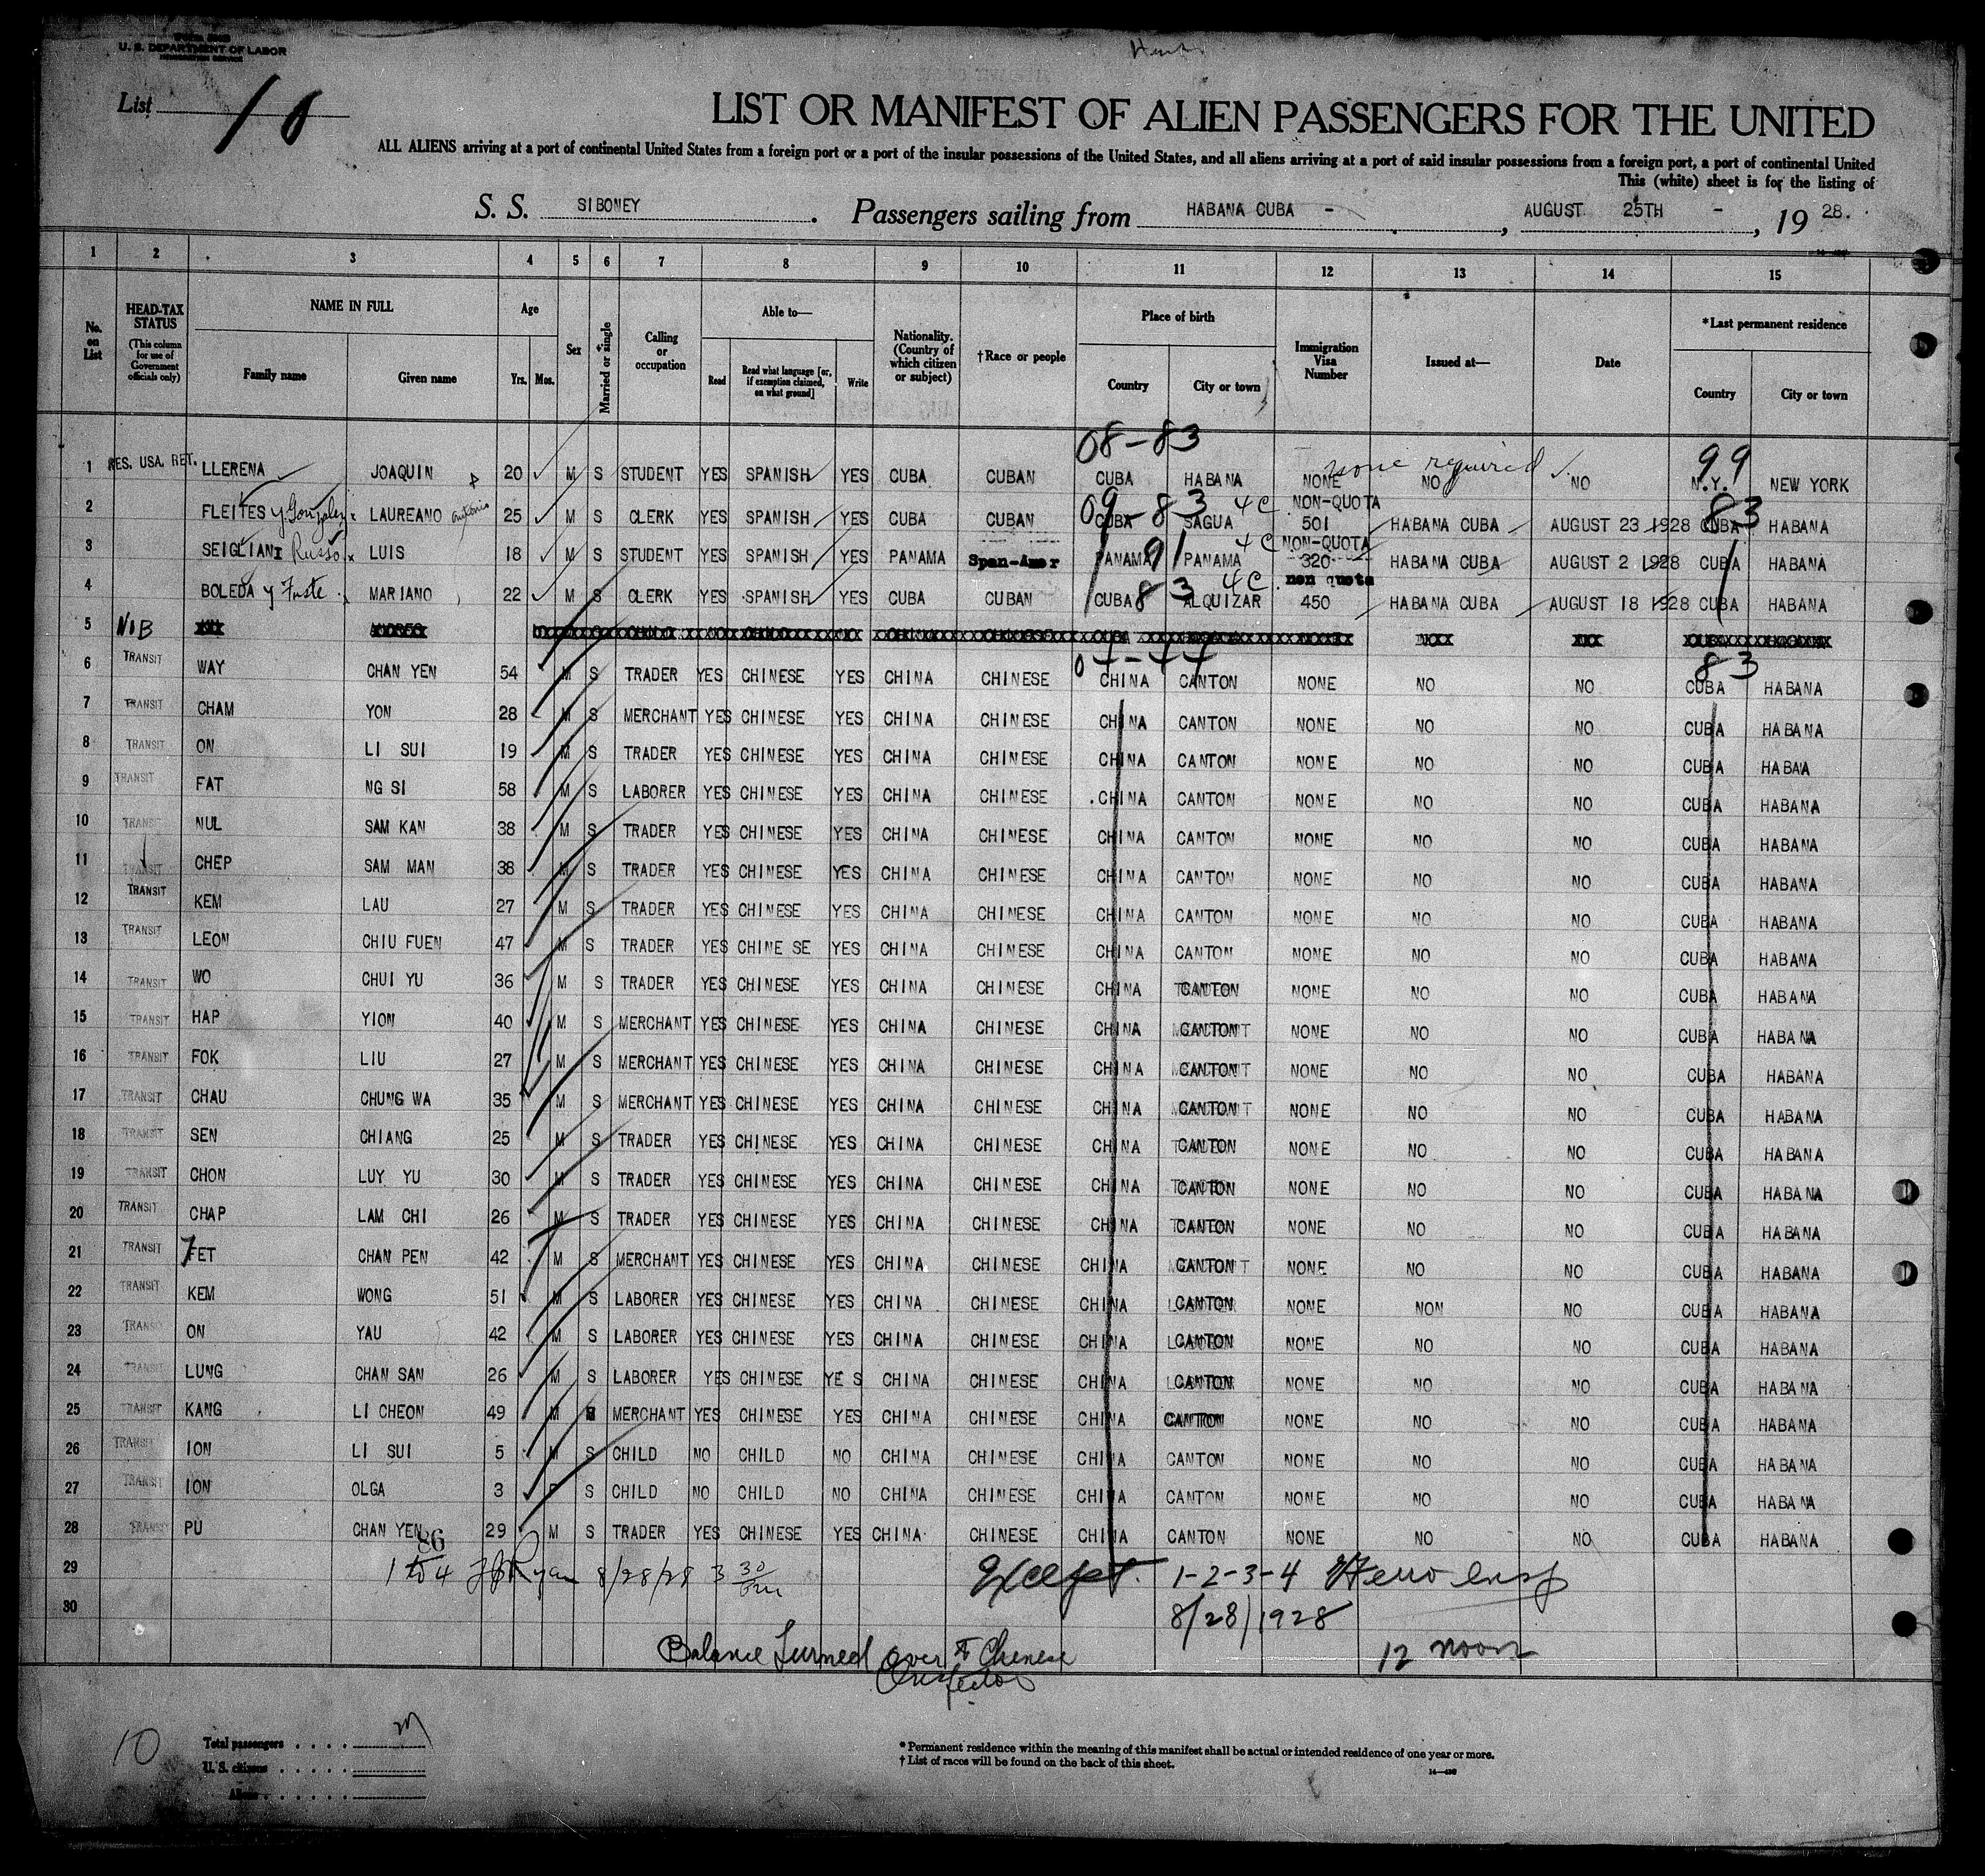 U. S. DEPARTMENT OF LABOR
IMMIGRATION SERVICE
List 10
LIST OR MANIFEST OF ALIEN PASSENGERS FOR THE UNITED
ALL ALIENS arriving at a port of continental United States from a foreign port or a port of the insular possessions of the United States, and all aliens arriving at a port of said insular possessions from a foreign port, a port of continental United
This (white) sheet is for the listing of
S. S. SIBONEY. Passengers sailing from HABANA CUBA - , AUGUST 25TH - , 19 28.
1 2 3 4 5 6 7 8 9 10 11 12 13 14 15
No. on List
HEAD-TAX STATUS
(This column for use of Government officials only)
NAME IN FULL
Family name
Given name
Age
Yrs. Mos.
Sex
Married or single
Calling or occupation
Able to—
Read
Read what language [or, if exemption claimed, on what ground]
Write
Nationality. (Country of which citizen or subject)
†Race or people
Place of birth
Country
City or town
Immigration Visa Number
Issued at—
Date
*Last permanent residence
Country
City or town
08-83
99
1 RES. USA. RET. LLERENA JOAQUIN 20 M S STUDENT YES SPANISH YES CUBA CUBAN CUBA HABANA NONE none required NO NO N.Y. NEW YORK
09-83 4C NON-QUOTA 83
2 FLEITES y Gonzalez LAUREANO Antonio 25 M S CLERK YES SPANISH YES CUBA CUBAN CUBA SAGUA 501 HABANA CUBA AUGUST 23 1928 CUBA HABANA
91 4C NON-QUOTA
3 SEIGLIANI Russo LUIS 18 M S STUDENT YES SPANISH YES PANAMA Span-Amer PANAMA PANAMA 320 HABANA CUBA AUGUST 2 1928 CUBA HABANA
83 4C non quota
4 BOLEDA y Fuste MARIANO 22 M S CLERK YES SPANISH YES CUBA CUBAN CUBA ALQUIZAR 450 HABANA CUBA AUGUST 18 1928 CUBA HABANA
5 NIB
07-77 83
6 TRANSIT WAY CHAN YEN 54 M S TRADER YES CHINESE YES CHINA CHINESE CHINA CANTON NONE NO NO CUBA HABANA
7 TRANSIT CHAM YON 28 M S MERCHANT YES CHINESE YES CHINA CHINESE CHINA CANTON NONE NO NO CUBA HABANA
8 TRANSIT ON LI SUI 19 M S TRADER YES CHINESE YES CHINA CHINESE CHINA CANTON NONE NO NO CUBA HABAA
9 TRANSIT FAT NG SI 58 M S LABORER YES CHINESE YES CHINA CHINESE CHINA CANTON NONE NO NO CUBA HABANA
10 TRANSIT NUL SAM KAN 38 M S TRADER YES CHINESE YES CHINA CHINESE CHINA CANTON NONE NO NO CUBA HABANA
11 TRANSIT CHEP SAM MAN 38 M S TRADER YES CHINESE YES CHINA CHINESE CHINA CANTON NONE NO NO CUBA HABANA
12 TRANSIT KEM LAU 27 M S TRADER YES CHINESE YES CHINA CHINESE CHINA CANTON NONE NO NO CUBA HABANA
13 TRANSIT LEON CHIU FUEN 47 M S TRADER YES CHINE SE YES CHINA CHINESE CHINA CANTON NONE NO NO CUBA HABANA
14 TRANSIT WO CHUI YU 36 M S TRADER YES CHINESE YES CHINA CHINESE CHINA CANTON NONE NO NO CUBA HABANA
15 TRANSIT HAP YION 40 M S MERCHANT YES CHINESE YES CHINA CHINESE CHINA CANTON NONE NO NO CUBA HABANA
16 TRANSIT FOK LIU 27 M S MERCHANT YES CHINESE YES CHINA CHINESE CHINA CANTON NONE NO NO CUBA HABANA
17 TRANSIT CHAU CHUNG WA 35 M S MERCHANT YES CHINESE YES CHINA CHINESE CHINA CANTON NONE NO NO CUBA HABANA
18 TRANSIT SEN CHIANG 25 M S TRADER YES CHINESE YES CHINA CHINESE CHINA CANTON NONE NO NO CUBA HABANA
19 TRANSIT CHON LUY YU 30 M S TRADER YES CHINESE YES CHINA CHINESE CHINA CANTON NONE NO NO CUBA HABANA
20 TRANSIT CHAP LAM CHI 26 M S TRADER YES CHINESE YES CHINA CHINESE CHINA CANTON NONE NO NO CUBA HABANA
21 TRANSIT FET CHAN PEN 42 M S MERCHANT YES CHINESE YES CHINA CHINESE CHINA CANTON NONE NO NO CUBA HABANA
22 TRANSIT KEM WONG 51 M S LABORER YES CHINESE YES CHINA CHINESE CHINA CANTON NONE NON NO CUBA HABANA
23 TRANSIT ON YAU 42 M S LABORER YES CHINESE YES CHINA CHINESE CHINA CANTON NONE NO NO CUBA HABANA
24 TRANSIT LUNG CHAN SAN 26 M S LABORER YES CHINESE YE S CHINA CHINESE CHINA CANTON NONE NO NO CUBA HABANA
25 TRANSIT KANG LI CHEON 49 M MERCHANT YES CHINESE YES CHINA CHINESE CHINA CANTON NONE NO NO CUBA HABANA
26 TRANSIT ION LI SUI 5 M S CHILD NO CHILD NO CHINA CHINESE CHINA CANTON NONE NO NO CUBA HABANA
27 TRANSIT ION OLGA 3 F S CHILD NO CHILD NO CHINA CHINESE CHINA CANTON NONE NO NO CUBA HABANA
28 TRANSIT PU CHAN YEN 29 M S TRADER YES CHINESE YES CHINA CHINESE CHINA CANTON NONE NO NO CUBA HABANA
86
29 1 to 4 Ryan 8/28/28 3 30 pm Except 1-2-3-4 insp
30 8/28/1928
Balance Turned over to Chinese Inspector 12 noon
10
Total passengers
U. S. citizens
Aliens
* Permanent residence within the meaning of this manifest shall be actual or intended residence of one year or more.
† List of races will be found on the back of this sheet.